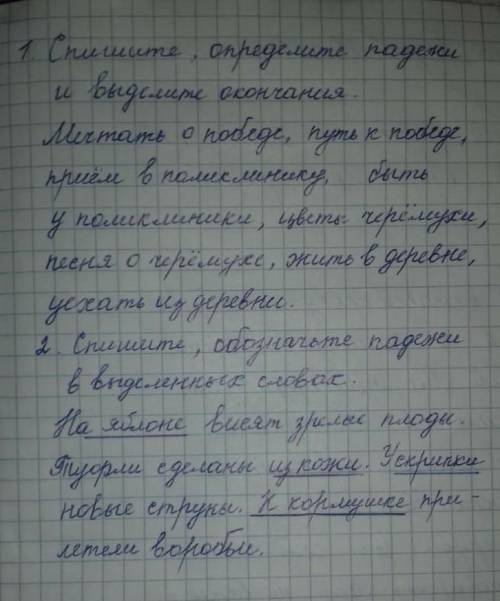 1. Спишите, определите падежи
и выделите окончания.
Мечтать о победе, путь к победе,
приём в поликлинику, быть
у поликлиники, цветы черёмухи,
песня о черёмухе, жить в деревне,
уехать из деревни.
2. Спишите, обозначьте падежи
в выделенных словах.
На яблоне висят зрелые плоды.
Туфли сделаны из кожи. У скрипки
новые струны. К кормушке при-
летели воробьи.